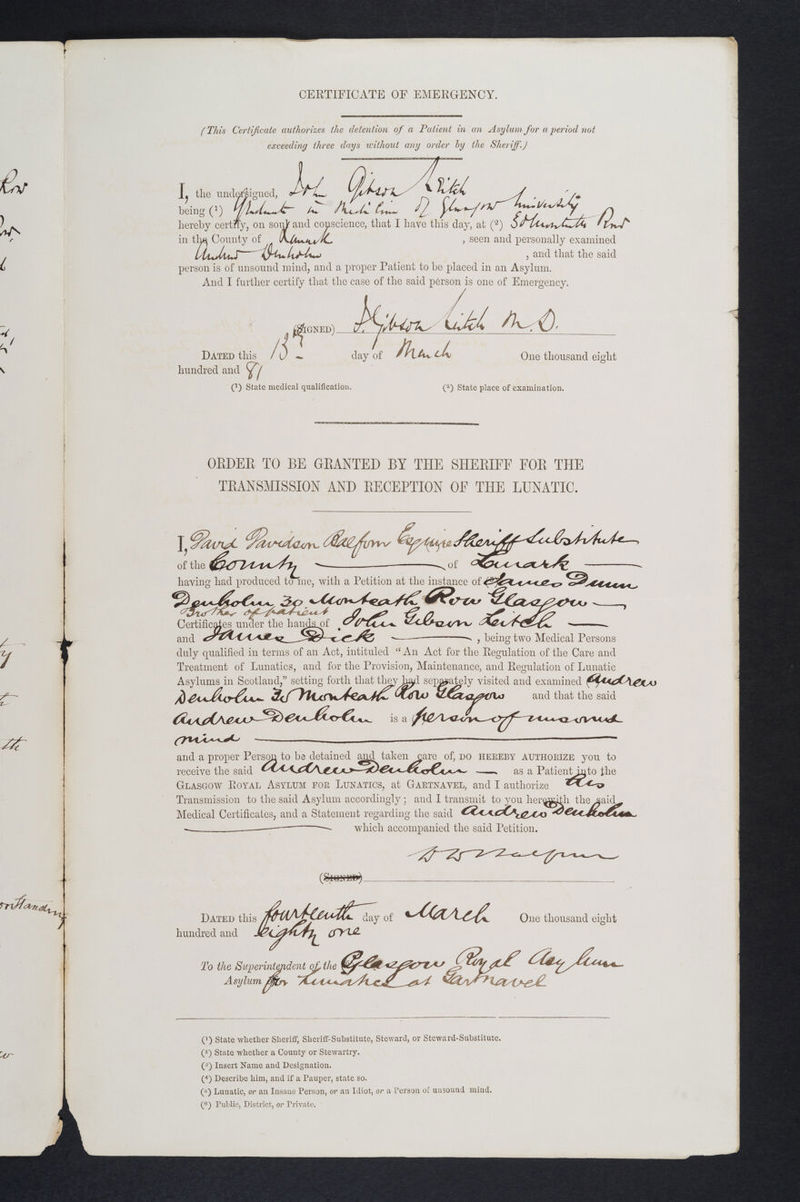 Row
CERTIFICATE OF EMERGENCY.
(This Certificate authorizes the detention of a Patient in an Asylum for a period not
exceeding three days without any order by the Sheriff.)
I, the undersigned, John Gibson Leitch
being (1) Graduate in Medicine of Glasgow University
hereby certify, on soul and conscience, that I have this day, at (2) 30 Monteith Row
in the County of Lanark , seen and personally examined
Andrew Denholm , and that the said
person is of unsound mind, and a proper Patient to be placed in an Asylum.
And I further certify that the case of the said person is one of Emergency.
(SIGNED) J. Gibson Leitch M.D.
DATED this 13th day of March One thousand eight
hundred and 81
(1) State medical qualification. (2) State place of examination.
ORDER TO BE GRANTED BY THE SHERIFF FOR THE
TRANSMISSION AND RECEPTION OF THE LUNATIC.
I, David Davidson Balfour Esquire Sheriff Substitute
of the County of Lanark
having had produced to me, with a Petition at the instance of James Dunn
Denholm 30 Monteath Row Glasgow
Brother of patient
Certificates under the hands of John Gibson Leitch
and James Dick , being two Medical Persons
duly qualified in terms of an Act, intituled "An Act for the Regulation of the Care and
Treatment of Lunatics, and for the Provision, Maintenance, and Regulation of Lunatic
Asylums in Scotland," setting forth that they had separately visited and examined Andrew
Denholm 30 Monteath Row Glasgow and that the said
Andrew Denholm is a person of unsound
mind
and a proper Person to be detained and taken care of, DO HEREBY AUTHORIZE you to
receive the said Andrew Denholm as a Patient into the
GLASGOW ROYAL ASYLUM FOR LUNATICS, AT GARTNAVEL, and I authorize his
Transmission to the said Asylum accordingly; and I transmit to you herewith the said
Medical Certificates, and a Statement regarding the said Andrew Denholm
which accompanied the said Petition.
D D Balfour
(SIGNED)
DATED this fourteenth day of March One thousand eight
hundred and eighty one
To the Superintendent of the Glasgow Royal Asylum
Asylum for Lunatics at Gartnavel
(1) State whether Sheriff, Sheriff-Substitute, Steward, or Steward-Substitute.
(2) State whether a County or Stewartry.
(3) Insert Name and Designation.
(4) Describe him, and if a Pauper, state so.
(5) Lunatic, or an Insane Person, or an Idiot, or a Person of unsound mind.
(6) Public, District, or Private.